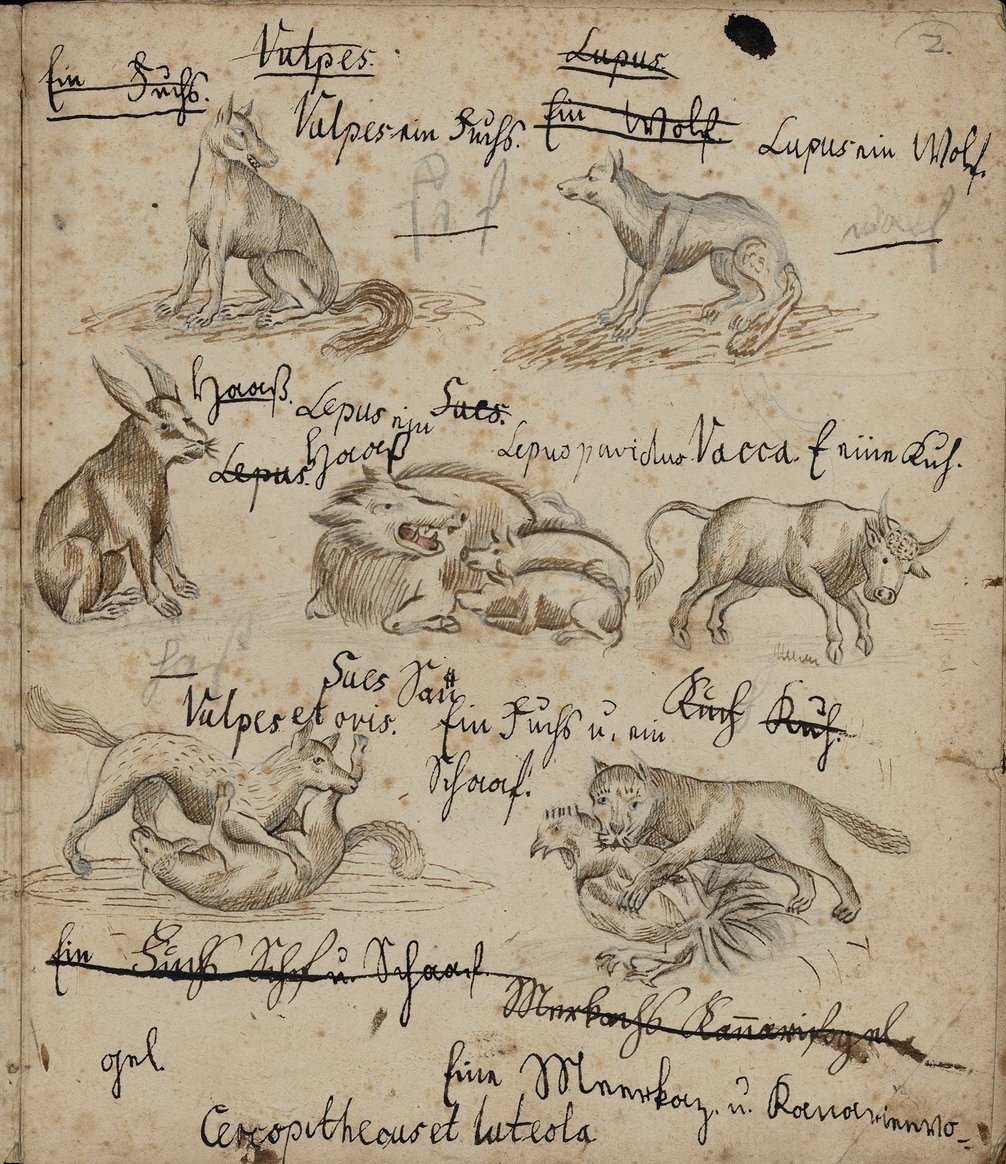 2.
Vulpes.
Lupus.
Ein Fuchs.
Vulpes ein Fuchs.
Ein Wolf.
Lupus ein Wolf.
Haaß.
Lepus ein
Haaß
Sues.
Lepus.
Lepus pavidus
Vacca. Eeine Kuh.
Sues Sau
Vulpes et ovis. Ein Fuchs u. ein
Schaaf.
Kuh Kuh.
Ein Fuchs Schf u. Schaaf.
Merkachs Kanarifogel
gel.
Eine Meerkaz. u. Kanarienvo-
Cercopithecus et luteola